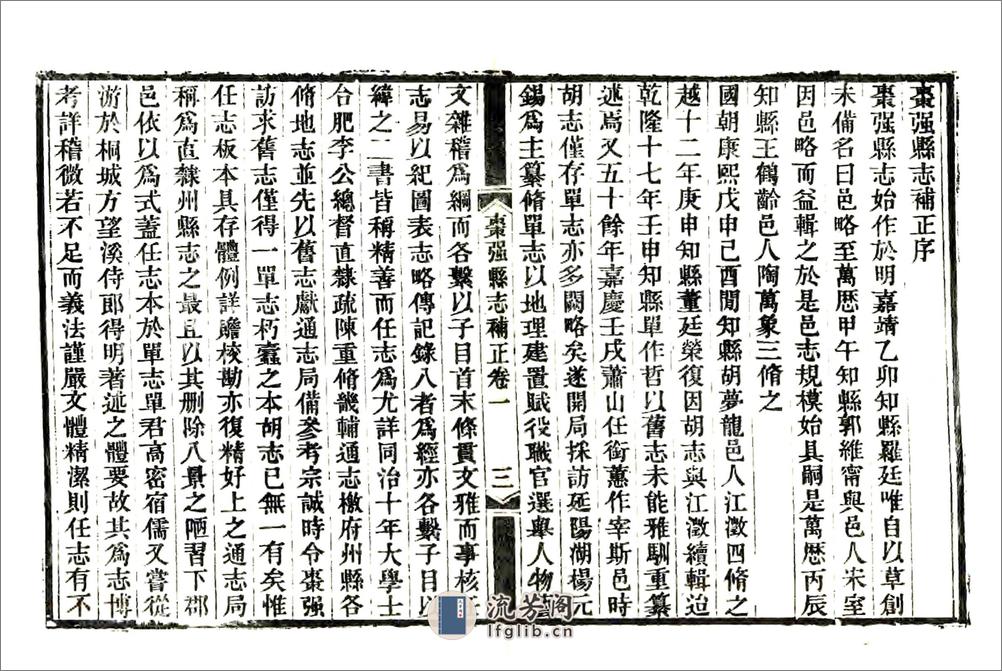 棗强縣志補正序
棗强縣志始作於明嘉靖乙卯知縣羅廷唯自以草創
未備名曰邑略至萬歷甲午知縣郭維甯與邑人宋室
因邑略而益輯之於是邑志規模始具嗣是萬歷丙辰
知縣王鶴齡邑人陶萬象三脩之
國朝康熙戊申己酉閒知縣胡夢龍邑人江澂四脩之
越十二年庚申知縣董廷榮復因胡志與江澂續輯迨
乾隆十七年壬申知縣單作哲以舊志未能雅馴重纂
述焉又五十餘年嘉慶壬戌蕭山任銜蕙作宰斯邑時
胡志僅存單志亦多闕略矣遂開局採訪延陽湖楊元
錫爲主纂脩單志以地理建置賦役職官選舉人物藝
棗强縣志補正卷一 三
文雜稽爲綱而各繫以子目首末條貫文雅而事核
志易以紀圖表志略傳記錄八者爲經亦各繫子目以
緯之二書皆稱精善而任志爲尤詳同治十年大學士
合肥李公總督直隸疏陳重脩畿輔通志檄府州縣各
脩地志並先以舊志獻通志局備參考宗誠時令棗强
訪求舊志僅得一單志朽蠹之本胡志已無一有矣惟
任志板本具存體例詳贍校勘亦復精好上之通志局
稱爲直隸州縣志之最且以其刪除八景之陋習下郡
邑依以爲式蓋任志本於單志單君高密宿儒又嘗從
游於桐城方望溪侍郎得明著述之體要故其爲志博
考詳稽微若不足而義法謹嚴文體精潔則任志有不
流芳閣
lfglib.cn